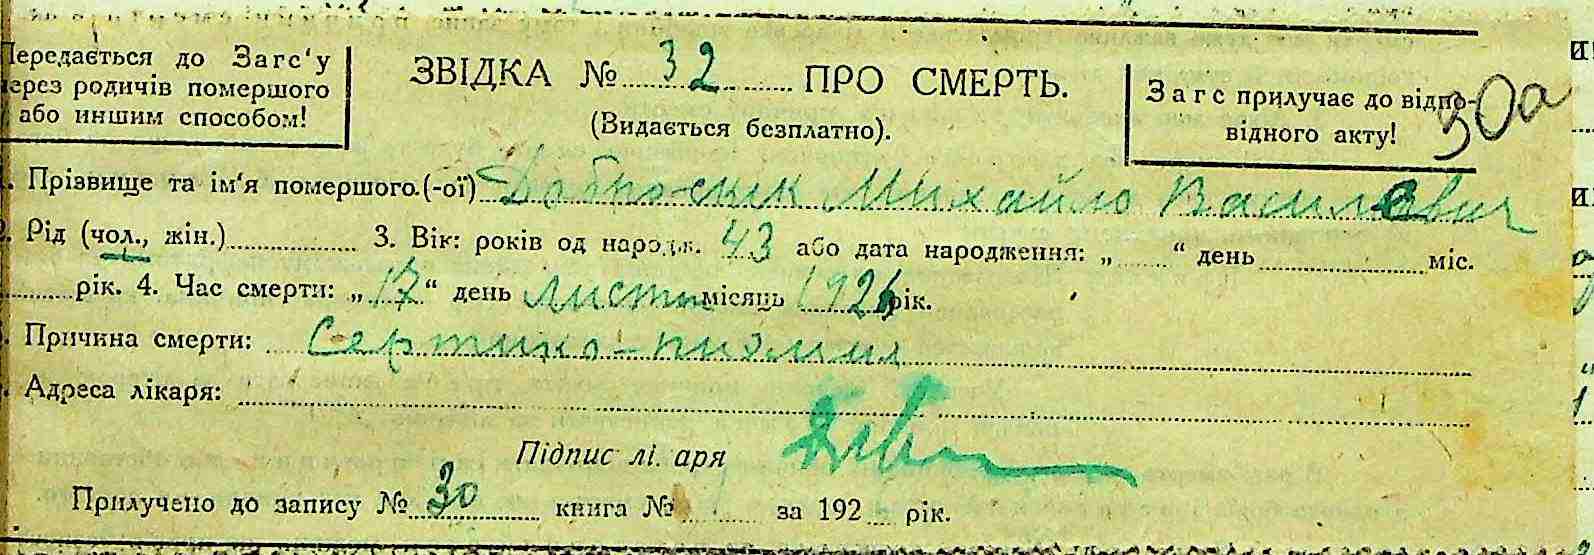 Передається до Загс‘у
через родичів помершого
або иншим способом!
ЗВІДКА № 32 ПРО СМЕРТЬ.
(Видається безплатно).
Загс прилучає до відпо-
відного акту!
30а
1. Прізвище та ім‘я помершого.(-ої) Доброскік Михайло Василович
2. Рід (чол., жін.) 3. Вік: років од народж. 43 або дата народження: „ “ день міс.
рік. 4. Час смерти: „17“ день листоп місяць 1926 рік.
5. Причина смерти: Септико-пиэмия
6. Адреса лікаря:
Підпис лі. аря
Прилучено до запису № 30 книга № за 192 рік.